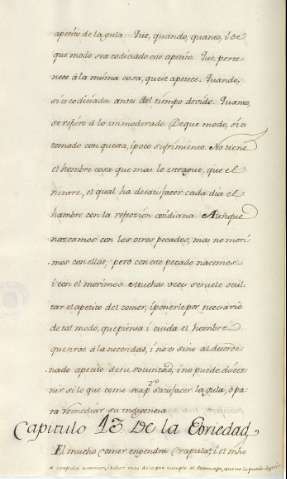 apetito de la gula. Que, quando, quanto, i de
que modo sea codiciado este apetito. Que, perte
nece á la misma cosa, que se apetece. Quando,
si es codiciada antes del tiempo devido. Quanto,
se refiere á lo immoderado. De que modo, si es
tomado con quexa, i poco sufrimiento. No tiene
el hombre cosa que mas lo
muere, el qual ha de satisfacer cada dia el
hambre con la refeccion cotidiana. Aunque
nazcamos con los otros pecados, mas no mori
mos con ellos; pero con este pecado nacemos
i con el morimos. Muchas veces se suele ocul
tar el apetito del comer, i ponerle por necesario
de tal modo, que piensa i cuida el hombre
que sirve á la necesidad, i no es sino al desorde
nado apetito de su voluntad, i no puede discer
nir si lo que come sea p.ª satisfacer la gula, ó pa
ra remediar su indigencia
Capitulo 13 De la Ebriedad
El mucho comer engendra Crapula, i el mucho